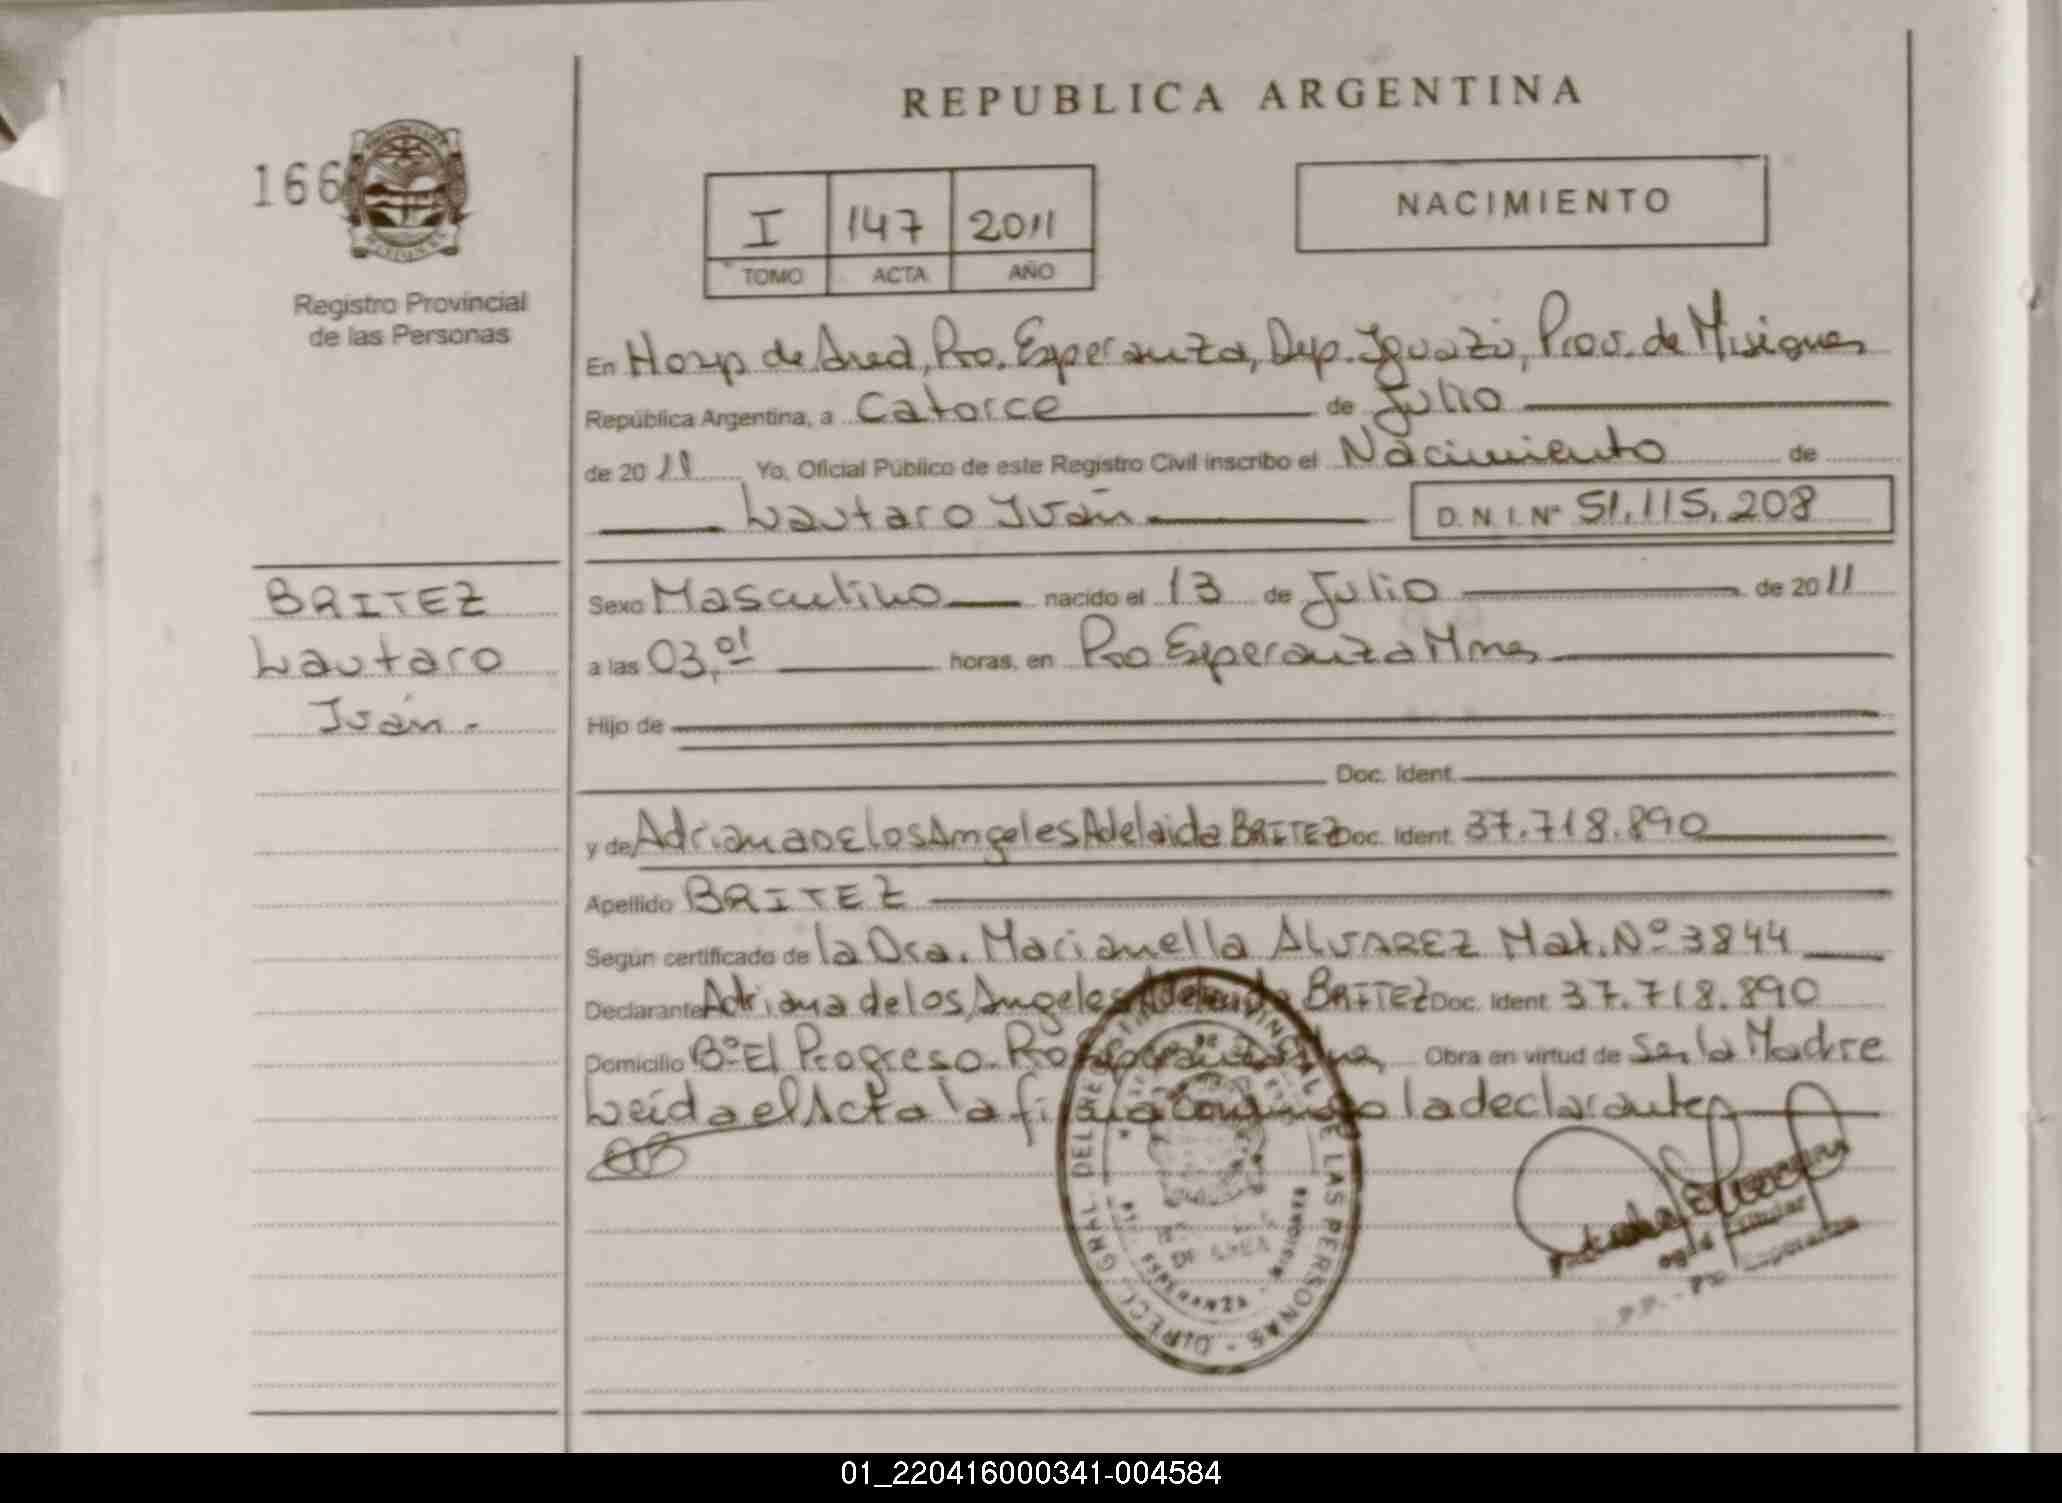 REPUBLICA ARGENTINA
166
Registro Provincial
de las Personas
I 147 2011
TOMO ACTA AÑO
NACIMIENTO
En Hosp de Area, Pto. Esperanza, Dep. Iguazú, Prov. de Misiones
República Argentina, a Catorce de Julio
de 2011 Yo, Oficial Público de este Registro Civil inscribo el Nacimiento de
Lautaro Iván D.N.I.Nº 51.115.208
BRITEZ
Lautaro
Iván.-
Sexo Masculino nacido el 13 de Julio de 2011
a las 03,01 horas, en Pto Esperanza Mnes
Hijo de
Doc. Ident.
y de Adriana DE los Angeles Adelaida BRITEZ Doc. Ident. 37.718.890
Apellido BRITEZ
Según certificado de la Dra. Marianella ALVAREZ Mat. Nº 3844
Declarante Adriana de los Angeles Adelaida BRITEZ Doc. Ident. 37.718.890
Domicilio Bº El Progreso - Pto Esperanza Obra en virtud de Ser la Madre
Leída el Acta la firma conmigo la declarante
DIRECC. GRAL. DEL REGISTRO PROVINCIAL DE LAS PERSONAS
ESPERANZA
01_220416000341-004584